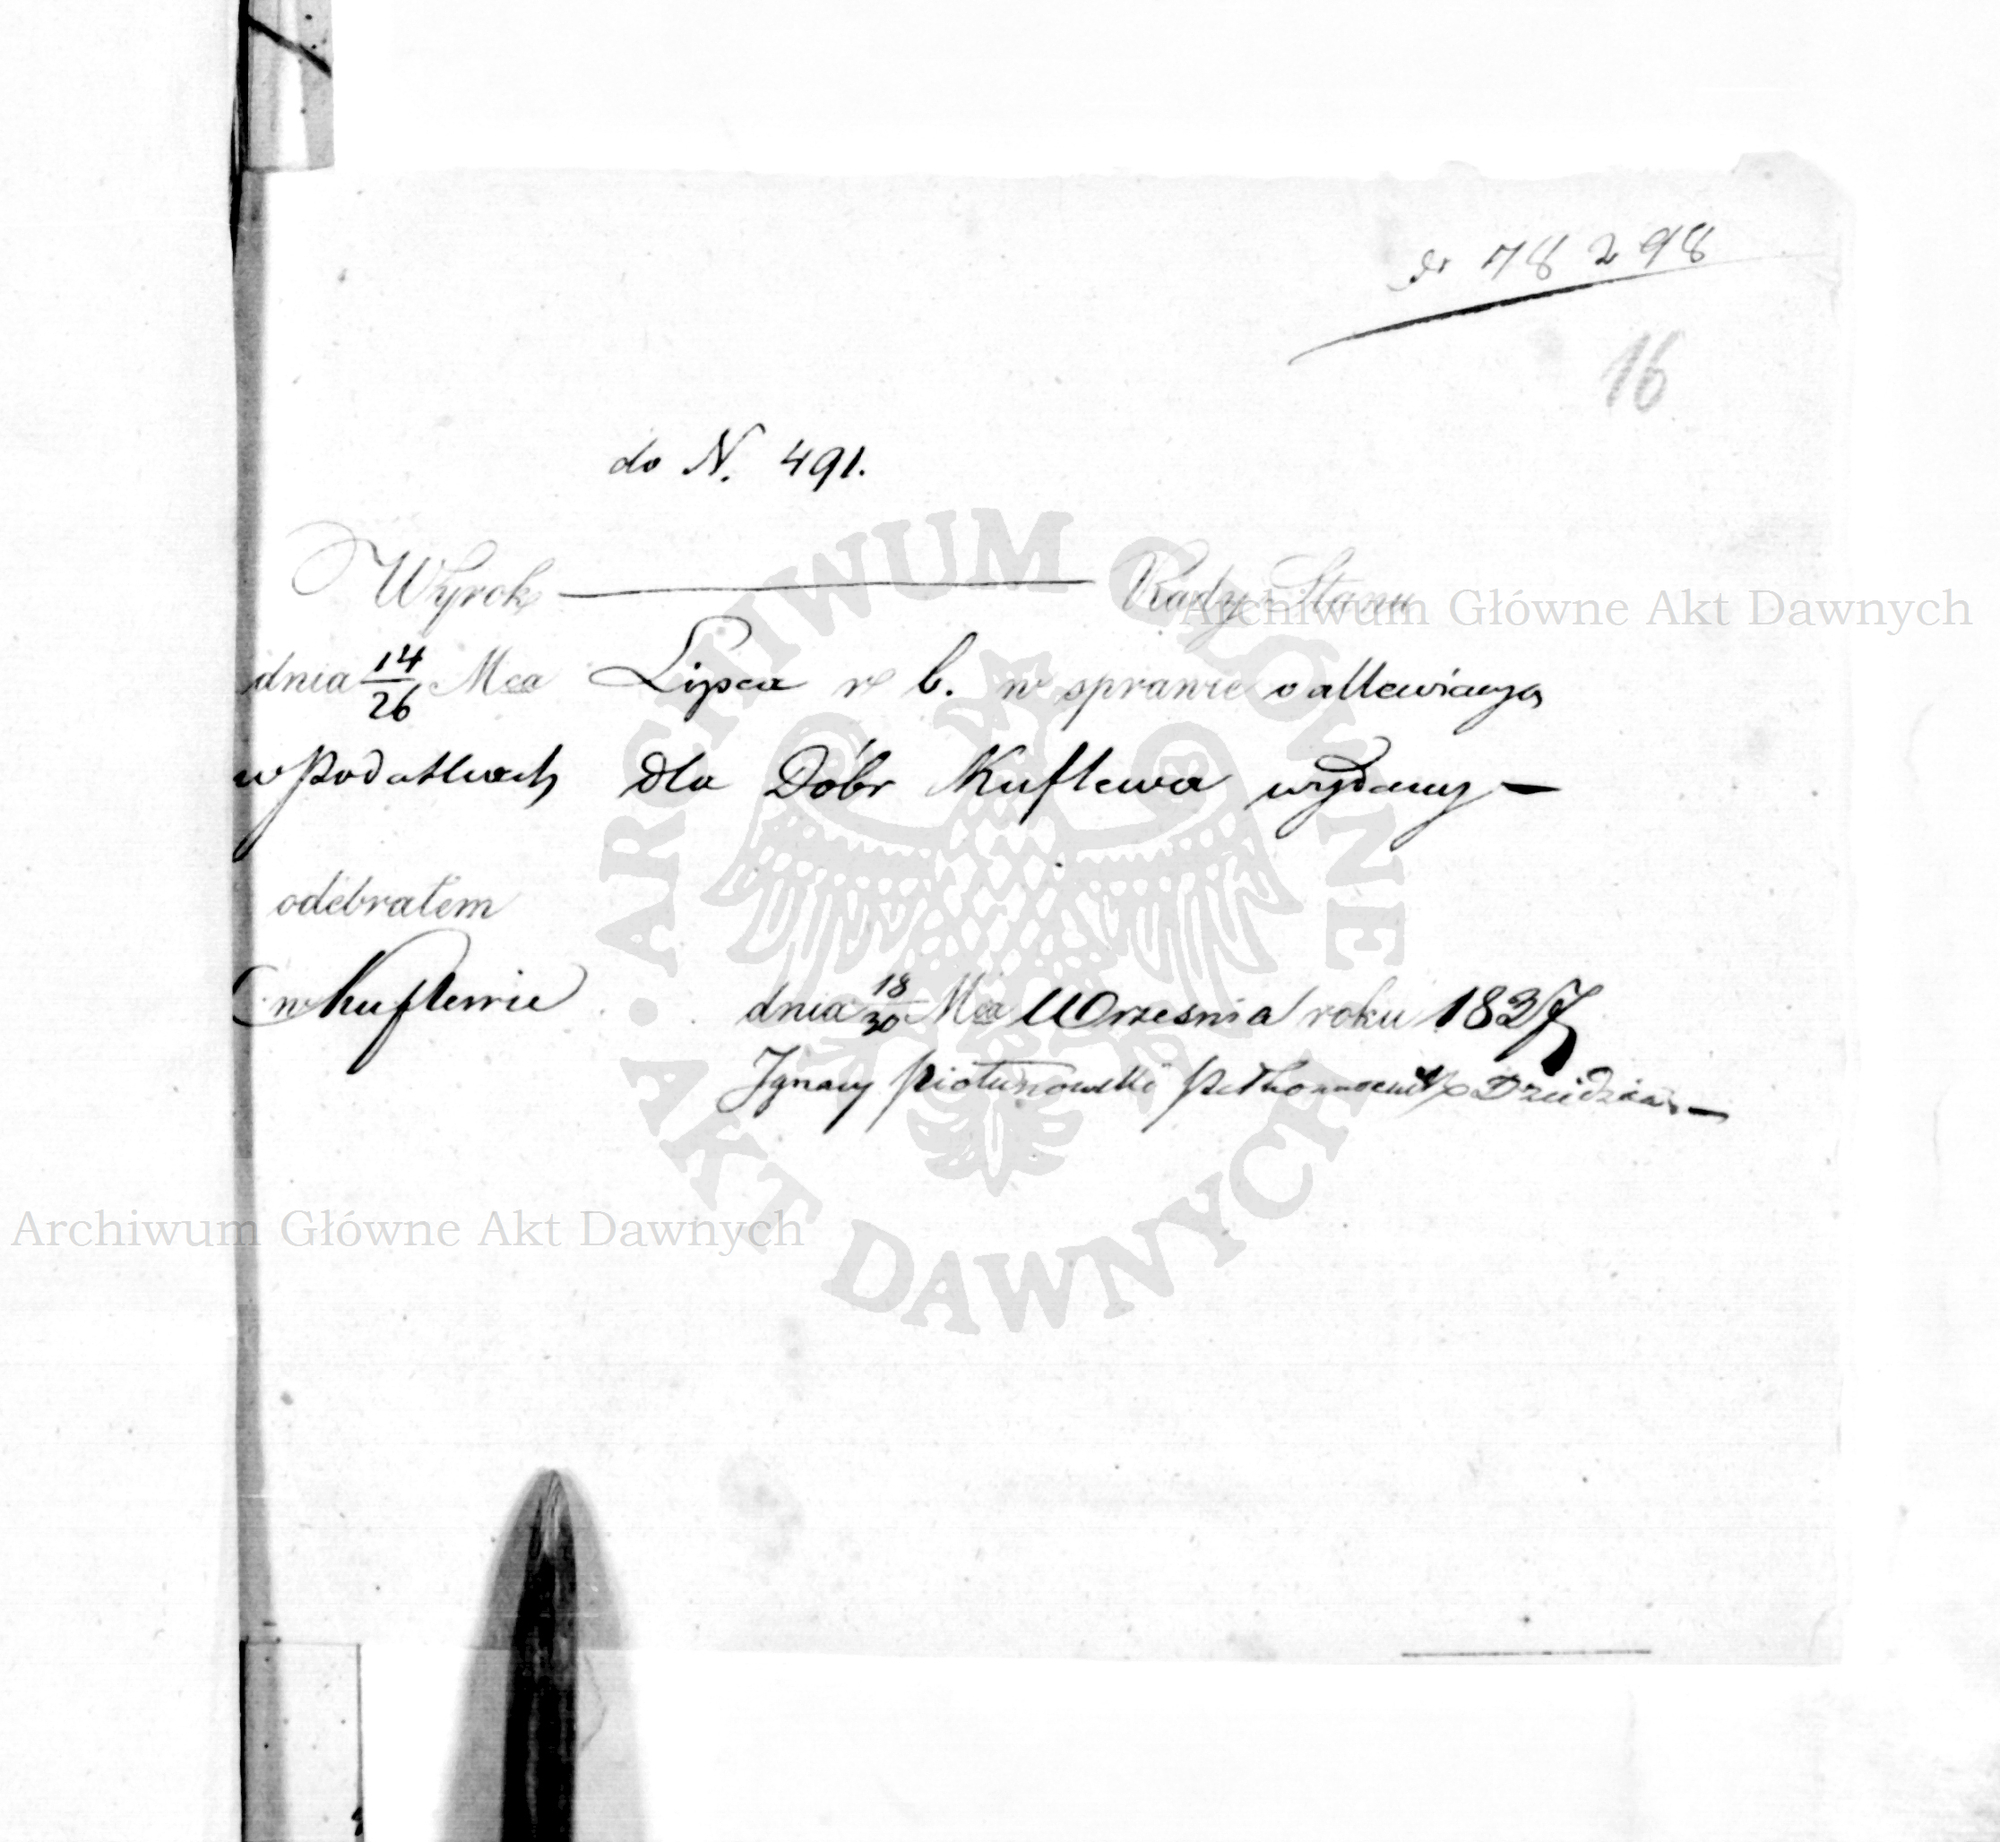 78298
16
do N. 491.
Wyrok Rady Stanu
dnia 14/26 Mca Lipca r b. w sprawie o allewiacyą
w Podatkach dla Dóbr Kuflewa wydany —
odebrałem
w Kuflewie dnia 18/30 Mca Września roku 1837
Ignacy Piotunowski Dziedzica —
ARCHIWUM GŁÓWNE AKT DAWNYCH
Archiwum Główne Akt Dawnych
Archiwum Główne Akt Dawnych